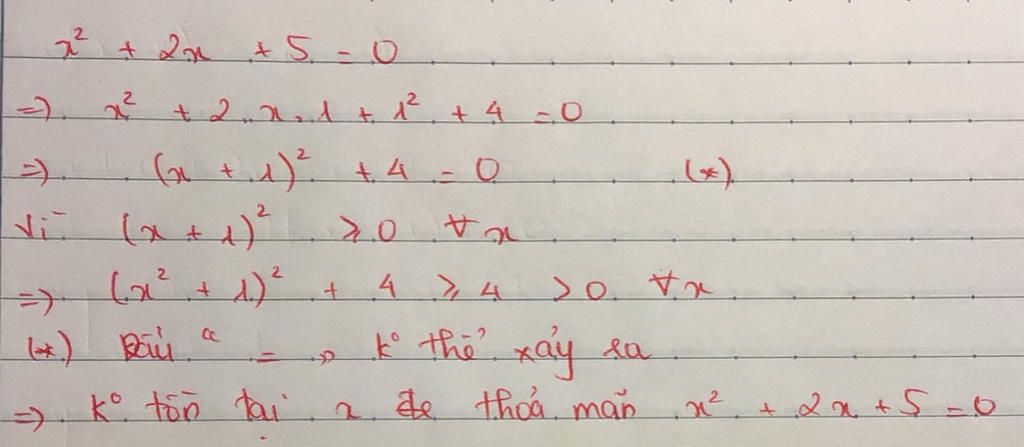 x² + 2x + 5 = 0
=> x² + 2.x.1 + 1² + 4 = 0
=> (x + 1)² + 4 = 0 (*)
Vì (x + 1)² ⩾ 0 ∀x
=> (x² + 1)² + 4 ⩾ 4 > 0 ∀x
(*) Dấu " = " k° thể xảy ra
=> k° tồn tại x để thoả mãn x² + 2x + 5 = 0